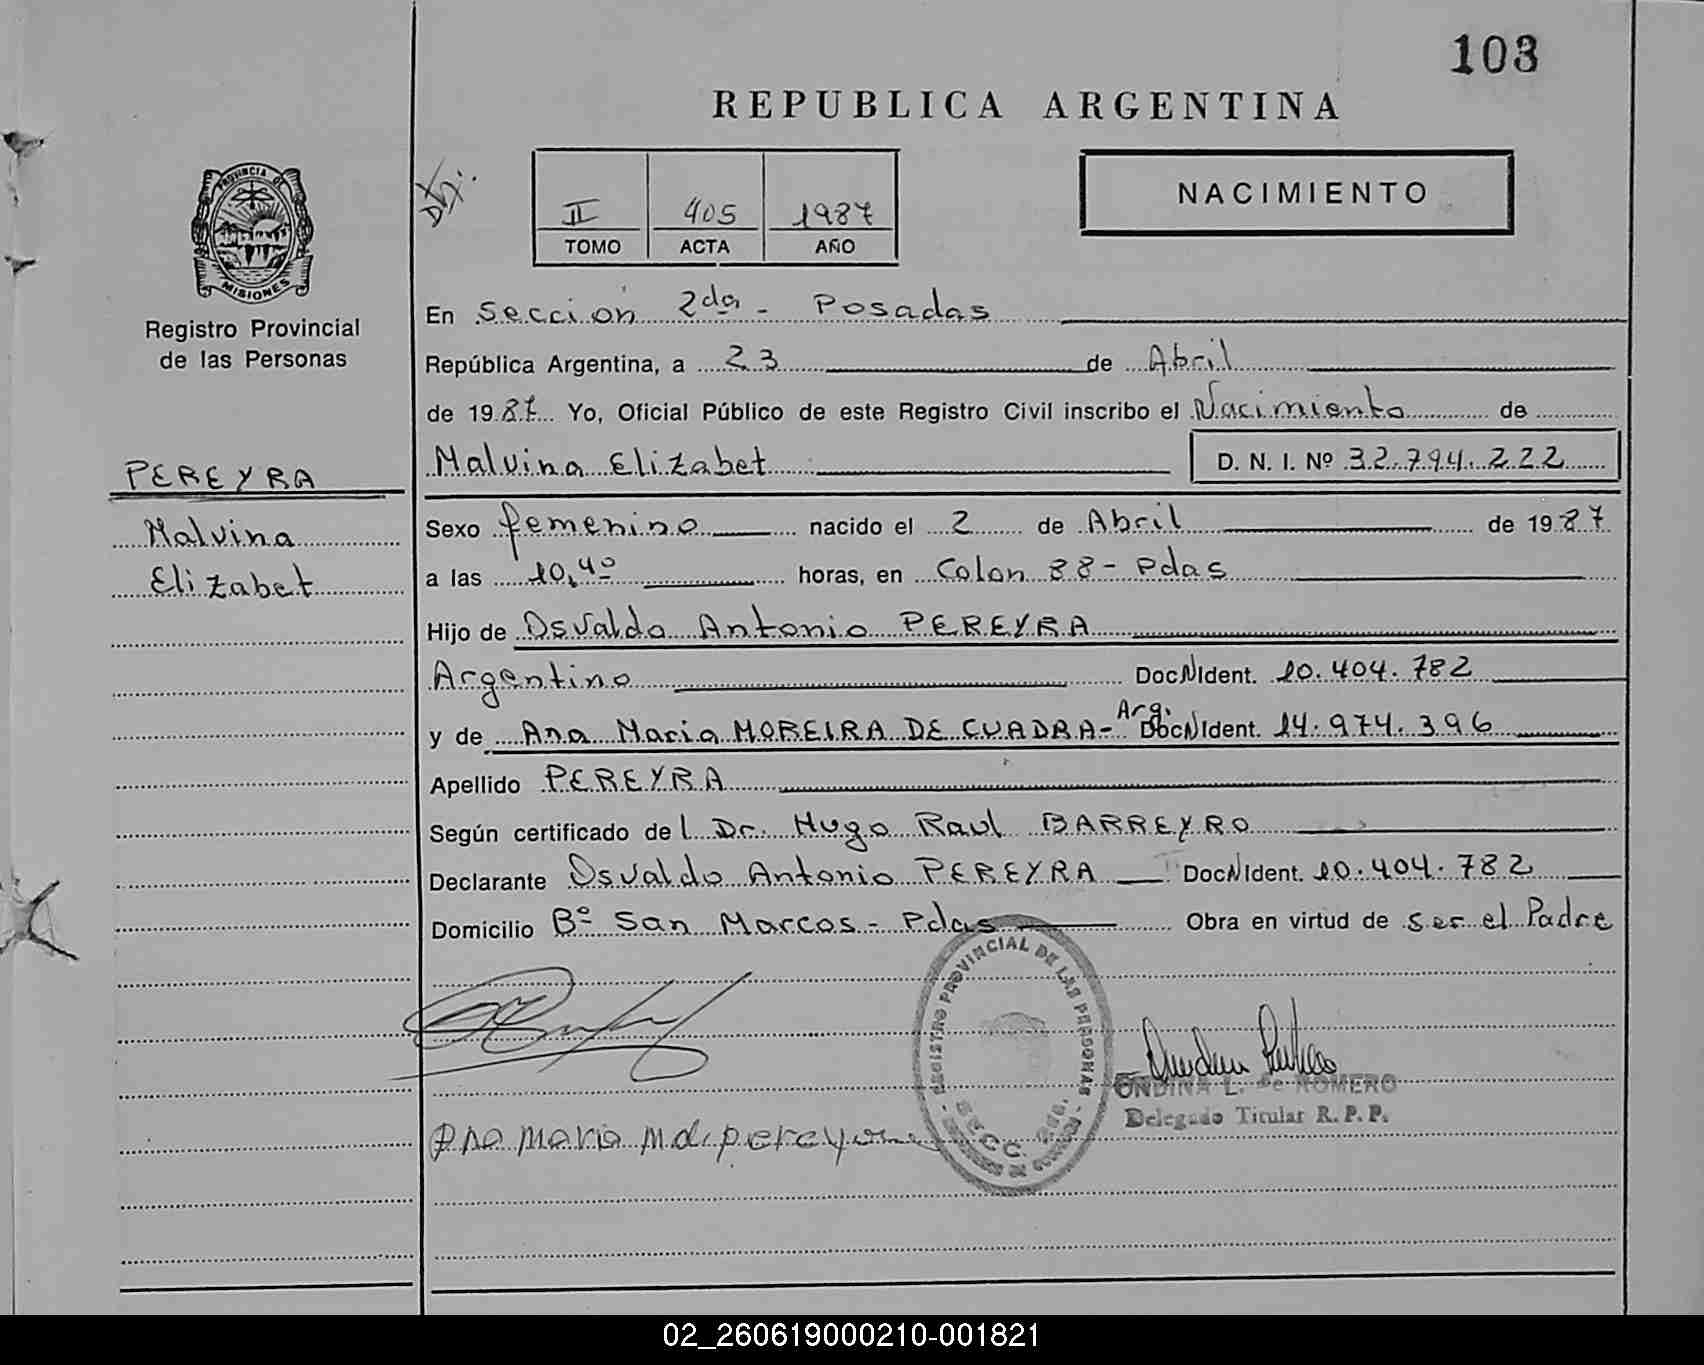 103
REPUBLICA ARGENTINA
PROVINCIA DE
MISIONES
Registro Provincial
de las Personas
II 405 1987
TOMO ACTA AÑO
NACIMIENTO
En Sección 2da - Posadas
República Argentina, a 23 de Abril
de 1987 Yo, Oficial Público de este Registro Civil inscribo el Nacimiento de
PEREYRA
Malvina
Elizabet
Malvina Elizabet D. N. I. Nº 32.794.222
Sexo femenino nacido el 2 de Abril de 1987
a las 10,40 horas, en Colon 88 - Pdas
Hijo de Osvaldo Antonio PEREYRA
Argentino Doc N Ident. 10.404.782
y de Ana Maria MOREIRA DE CUADRA - Arg. Doc N Ident. 14.974.396
Apellido PEREYRA
Según certificado del Dr. Hugo Raul BARREYRO
Declarante Osvaldo Antonio PEREYRA Doc N Ident. 10.404.782
Domicilio Bº San Marcos - Pdas Obra en virtud de ser el Padre
REGISTRO PROVINCIAL DE LAS PERSONAS
SECC. 2da.
ONDINA L. de ROMERO
Delegado Titular R. P. P.
Ana Maria M. de pereyra
02_260619000210-001821